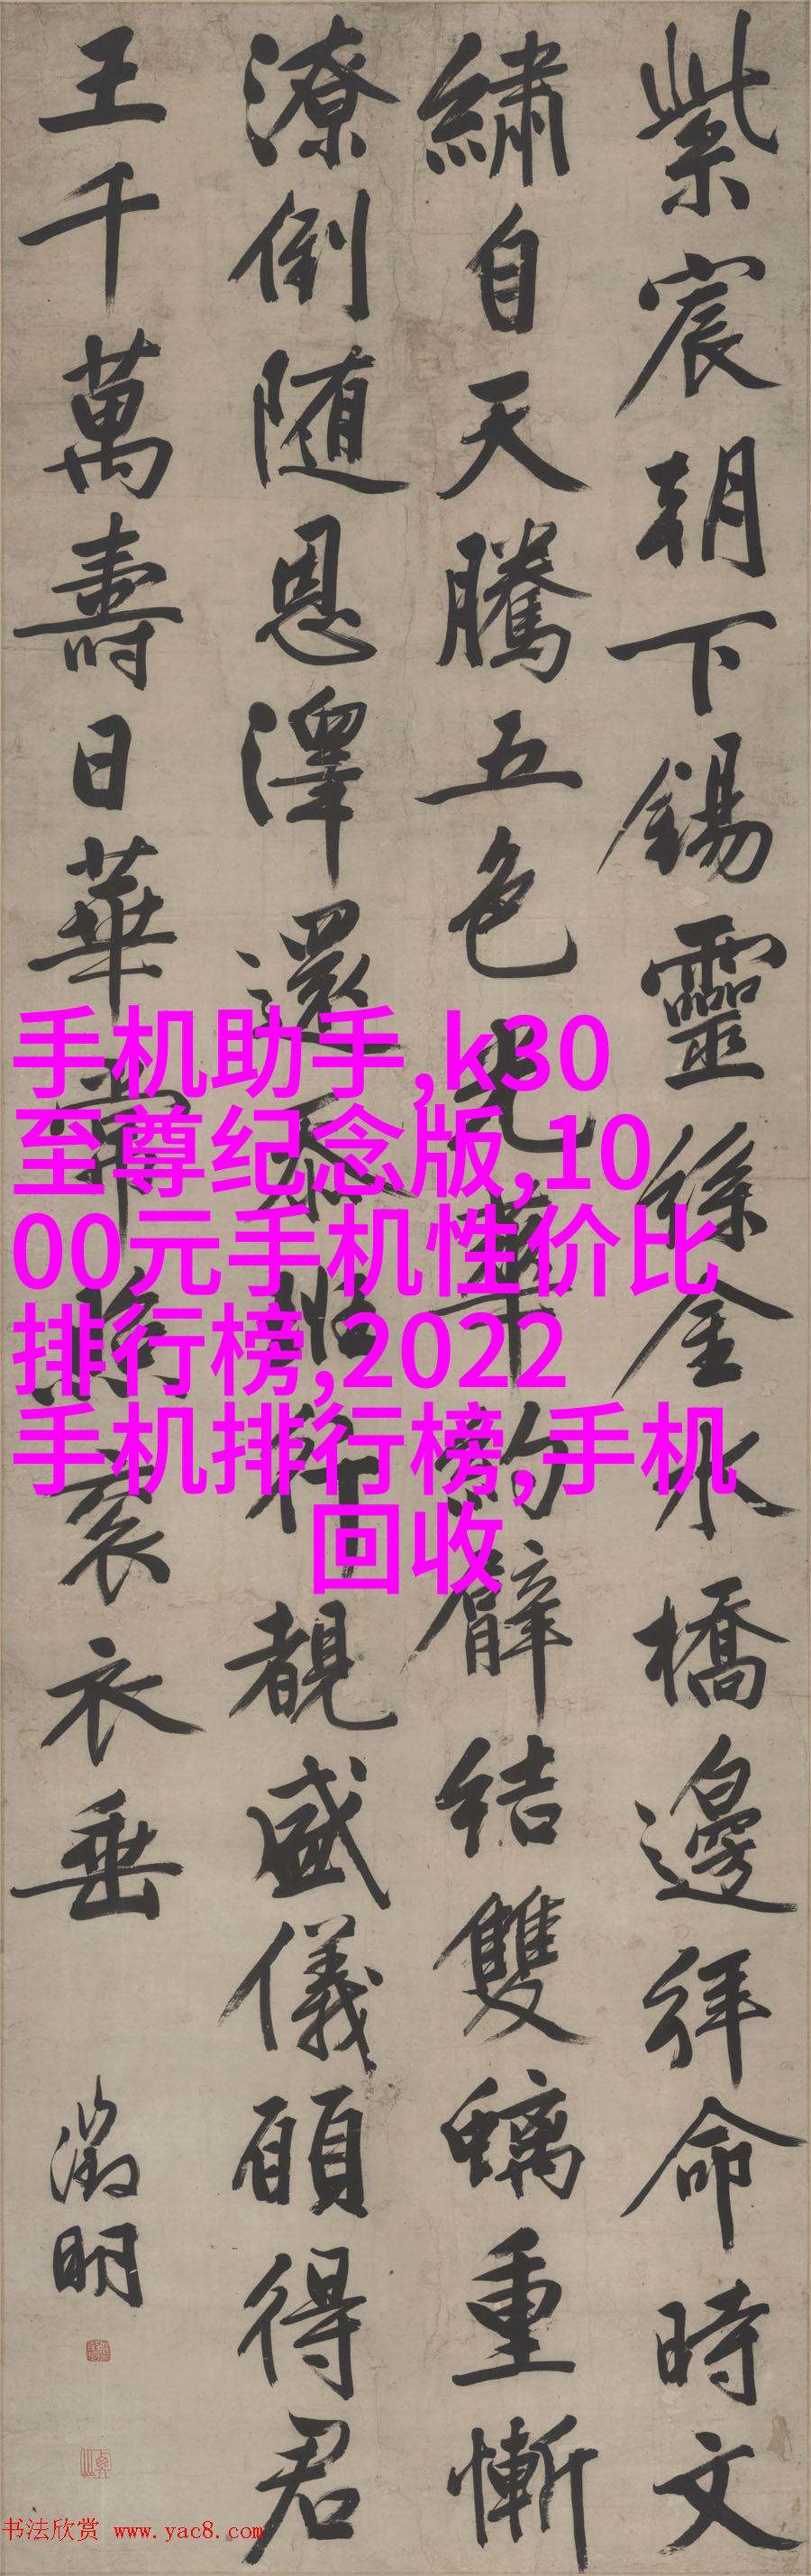 紫宸朝下錫靈絲金水橋邊拜命時文
繡自天騰五色光華約臂結雙螭重慚
潦倒随恩澤還忝班行覩盛儀願得君
王千萬壽日華常照袞衣垂
徵明
手机助手,k30
至尊纪念版,10
00元手机性价比
排行榜,2022
手机排行榜,手机
回收
书法欣赏 www.yac8.com